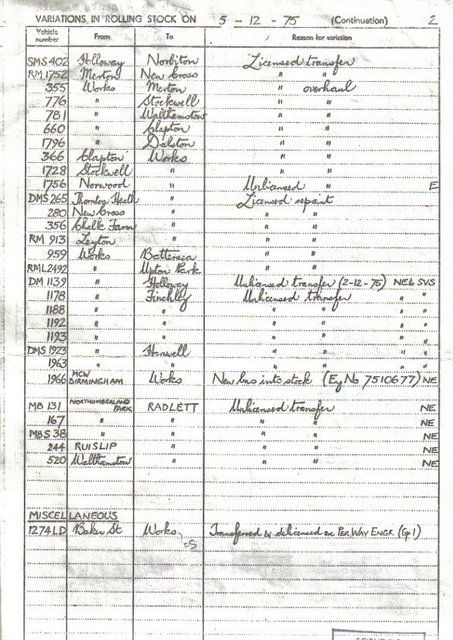 VARIATIONS IN ROLLING STOCK ON 5 - 12 - 75 (Continuation) 2
Vehicle number From To Reason for variation
SMS 402 Holloway Norbiton Licensed transfer
RM 1752 Merton New Cross " "
355 Works Merton " overhaul
776 " Stockwell " "
781 " Walthamstow " "
660 " Clapton " "
1796 " Dalston " "
366 Clapton Works " "
1728 Stockwell " " "
1756 Norwood " Unlicensed " E
DMS 265 Thornton Heath " Licensed repaint
280 New Cross " " "
356 Chalk Farm " " "
RM 913 Leyton " " "
959 Works Battersea " "
RML 2492 " Upton Park " "
DM 1139 " Holloway Unlicensed transfer (2-12-75) NEL SVS
1178 " Finchley Unlicensed transfer " "
1188 " " " " " "
1192 " " " " " "
1193 " " " " " "
DMS 1923 " Hanwell " " " "
1963 " " " " " "
1966 MCW BIRMINGHAM Works New bus into stock (Eng No 7510677) NE
MB 131 NORTHUMBERLAND PARK RADLETT Unlicensed transfer NE
167 " " " " NE
MBS 38 " " " " NE
244 RUISLIP " " " NE
520 Walthamstow " " " NE
MISCELLANEOUS
1274LD Baker St Works Transferred & delicensed ex PER WAY ENGR (Gp 1)